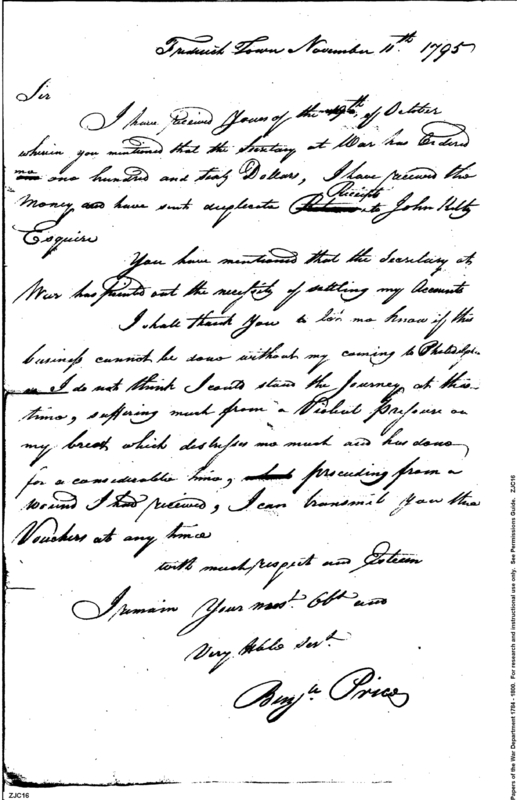 Frederick Town November 11th. 1795
Sir
I have received Yours of the of October
wherein you mentioned that the Secretary at War has Ordered
me one hundred and twenty Dollars, I have received the
Money and have sent duplicate Receipts to John Kilty
Esquire
You have mentioned that the Secretary at
War has pointed out the necessity of settling my Accounts
I shall thank You to let me know if this
business cannot be done without my coming to Philadelph-
ia I do not think I could stand the Journey at this
time, suffering much from a Violent Pressure on
my breast which distresses me much and has done
for a considerable time, proceeding from a
wound I had received, I can transmit you the
Vouchers at any time
with much respect and Esteem
I remain Your most. Obt and
Very Hble Servt.
Benja Price
Papers of the War Department 1784 - 1800. For research and instructional use only. See Permissions Guide. ZJC16
ZJC16